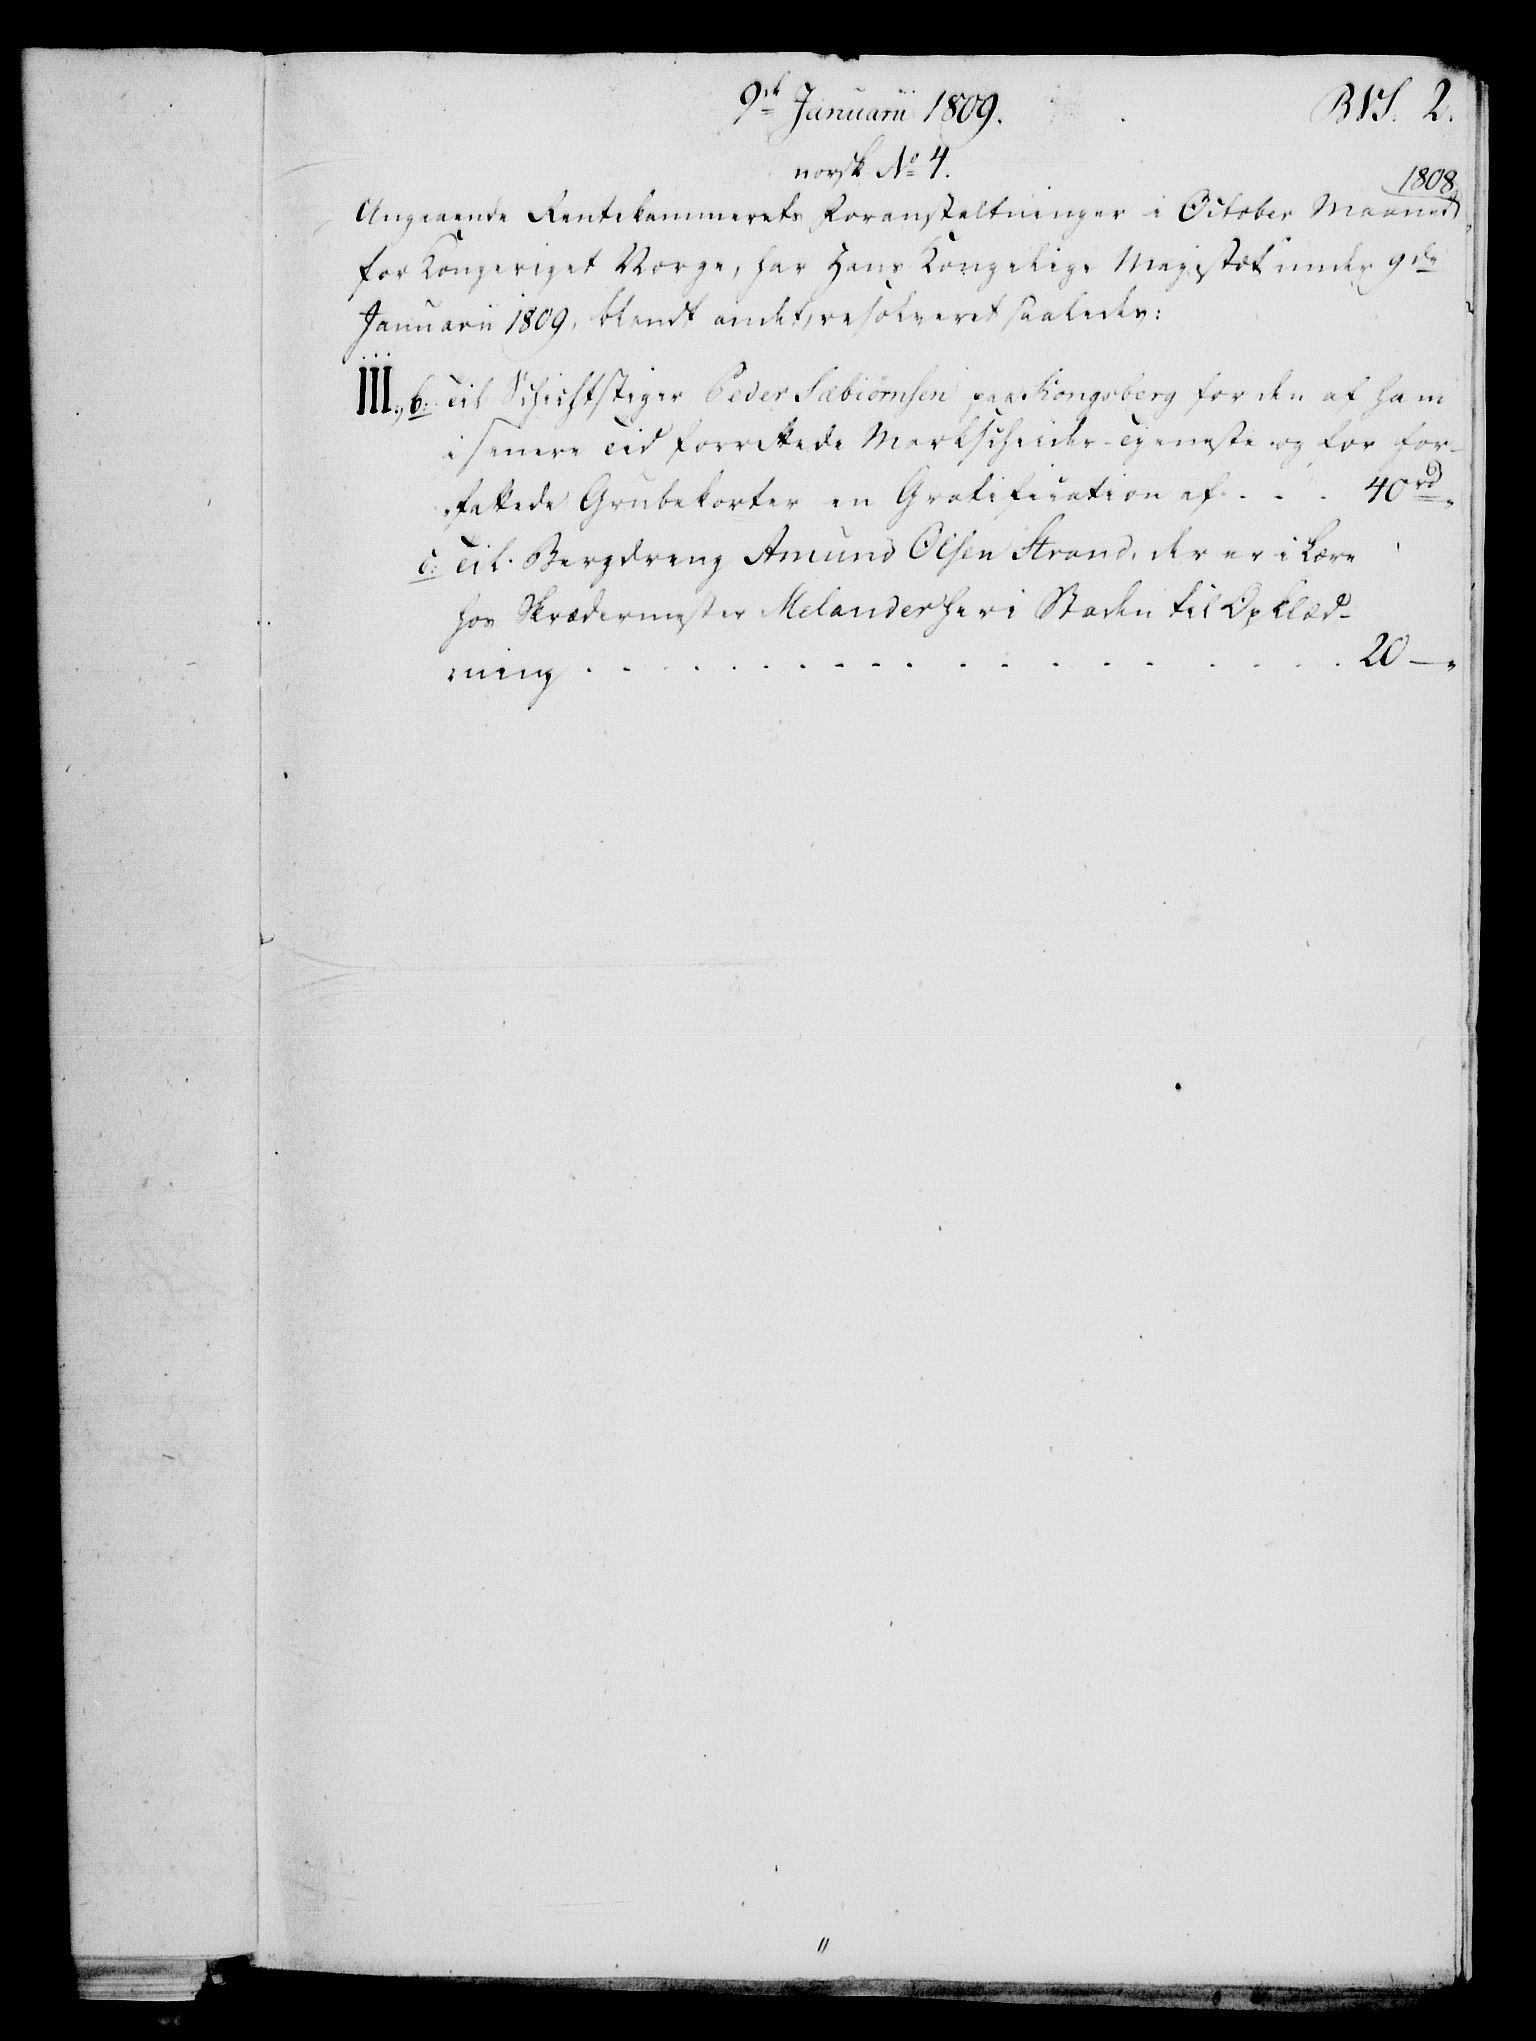 9de Januarii 1809. BVS. 2.
norsk No 4.
1808
Angaaende Rentekammerets Foranstaltninger i October Maaned
for Kongeriget Norge, har Hans Kongelige Majestæt under 9de
Januarii 1809, blandt andet, resolveret saaledes:
III., b: Til Schichtstiger Peder Sæbiörnsen paa Kongsberg for den af ham
i senere Tid forrettede Markscheider-Tjeneste og for for-
fattede Grubekorter en Gratification af . . . 40 rd „
c: Til Bergdreng Amund Olsen Strand, der er i Lære
hos Skrædermester Melander her i Staden til Opklæd-
ning . . . . . . . . . . . . . . . . 20 — „